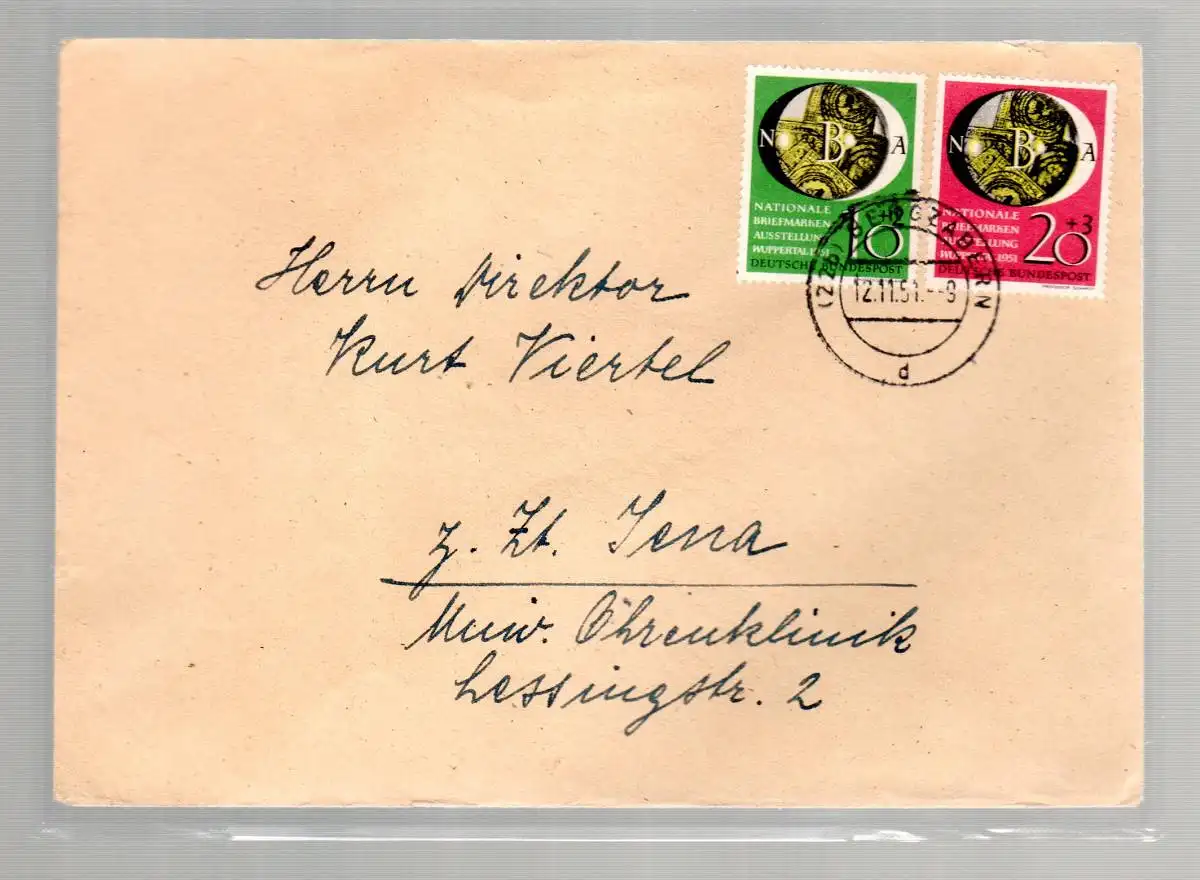 N B A
NATIONALE
BRIEFMARKEN
AUSSTELLUNG
WUPPERTAL 1951
10 +2
DEUTSCHE BUNDESPOST
N B A
NATIONALE
BRIEFMARKEN
AUSSTELLUNG
1951
20 +3
DEUTSCHE BUNDESPOST
BERGZABERN
12.11.51.--9
d
Herrn Direktor
Kurt Viertel
z. Zt. Jena
Univ. Ohrenklinik
Lessingstr. 2